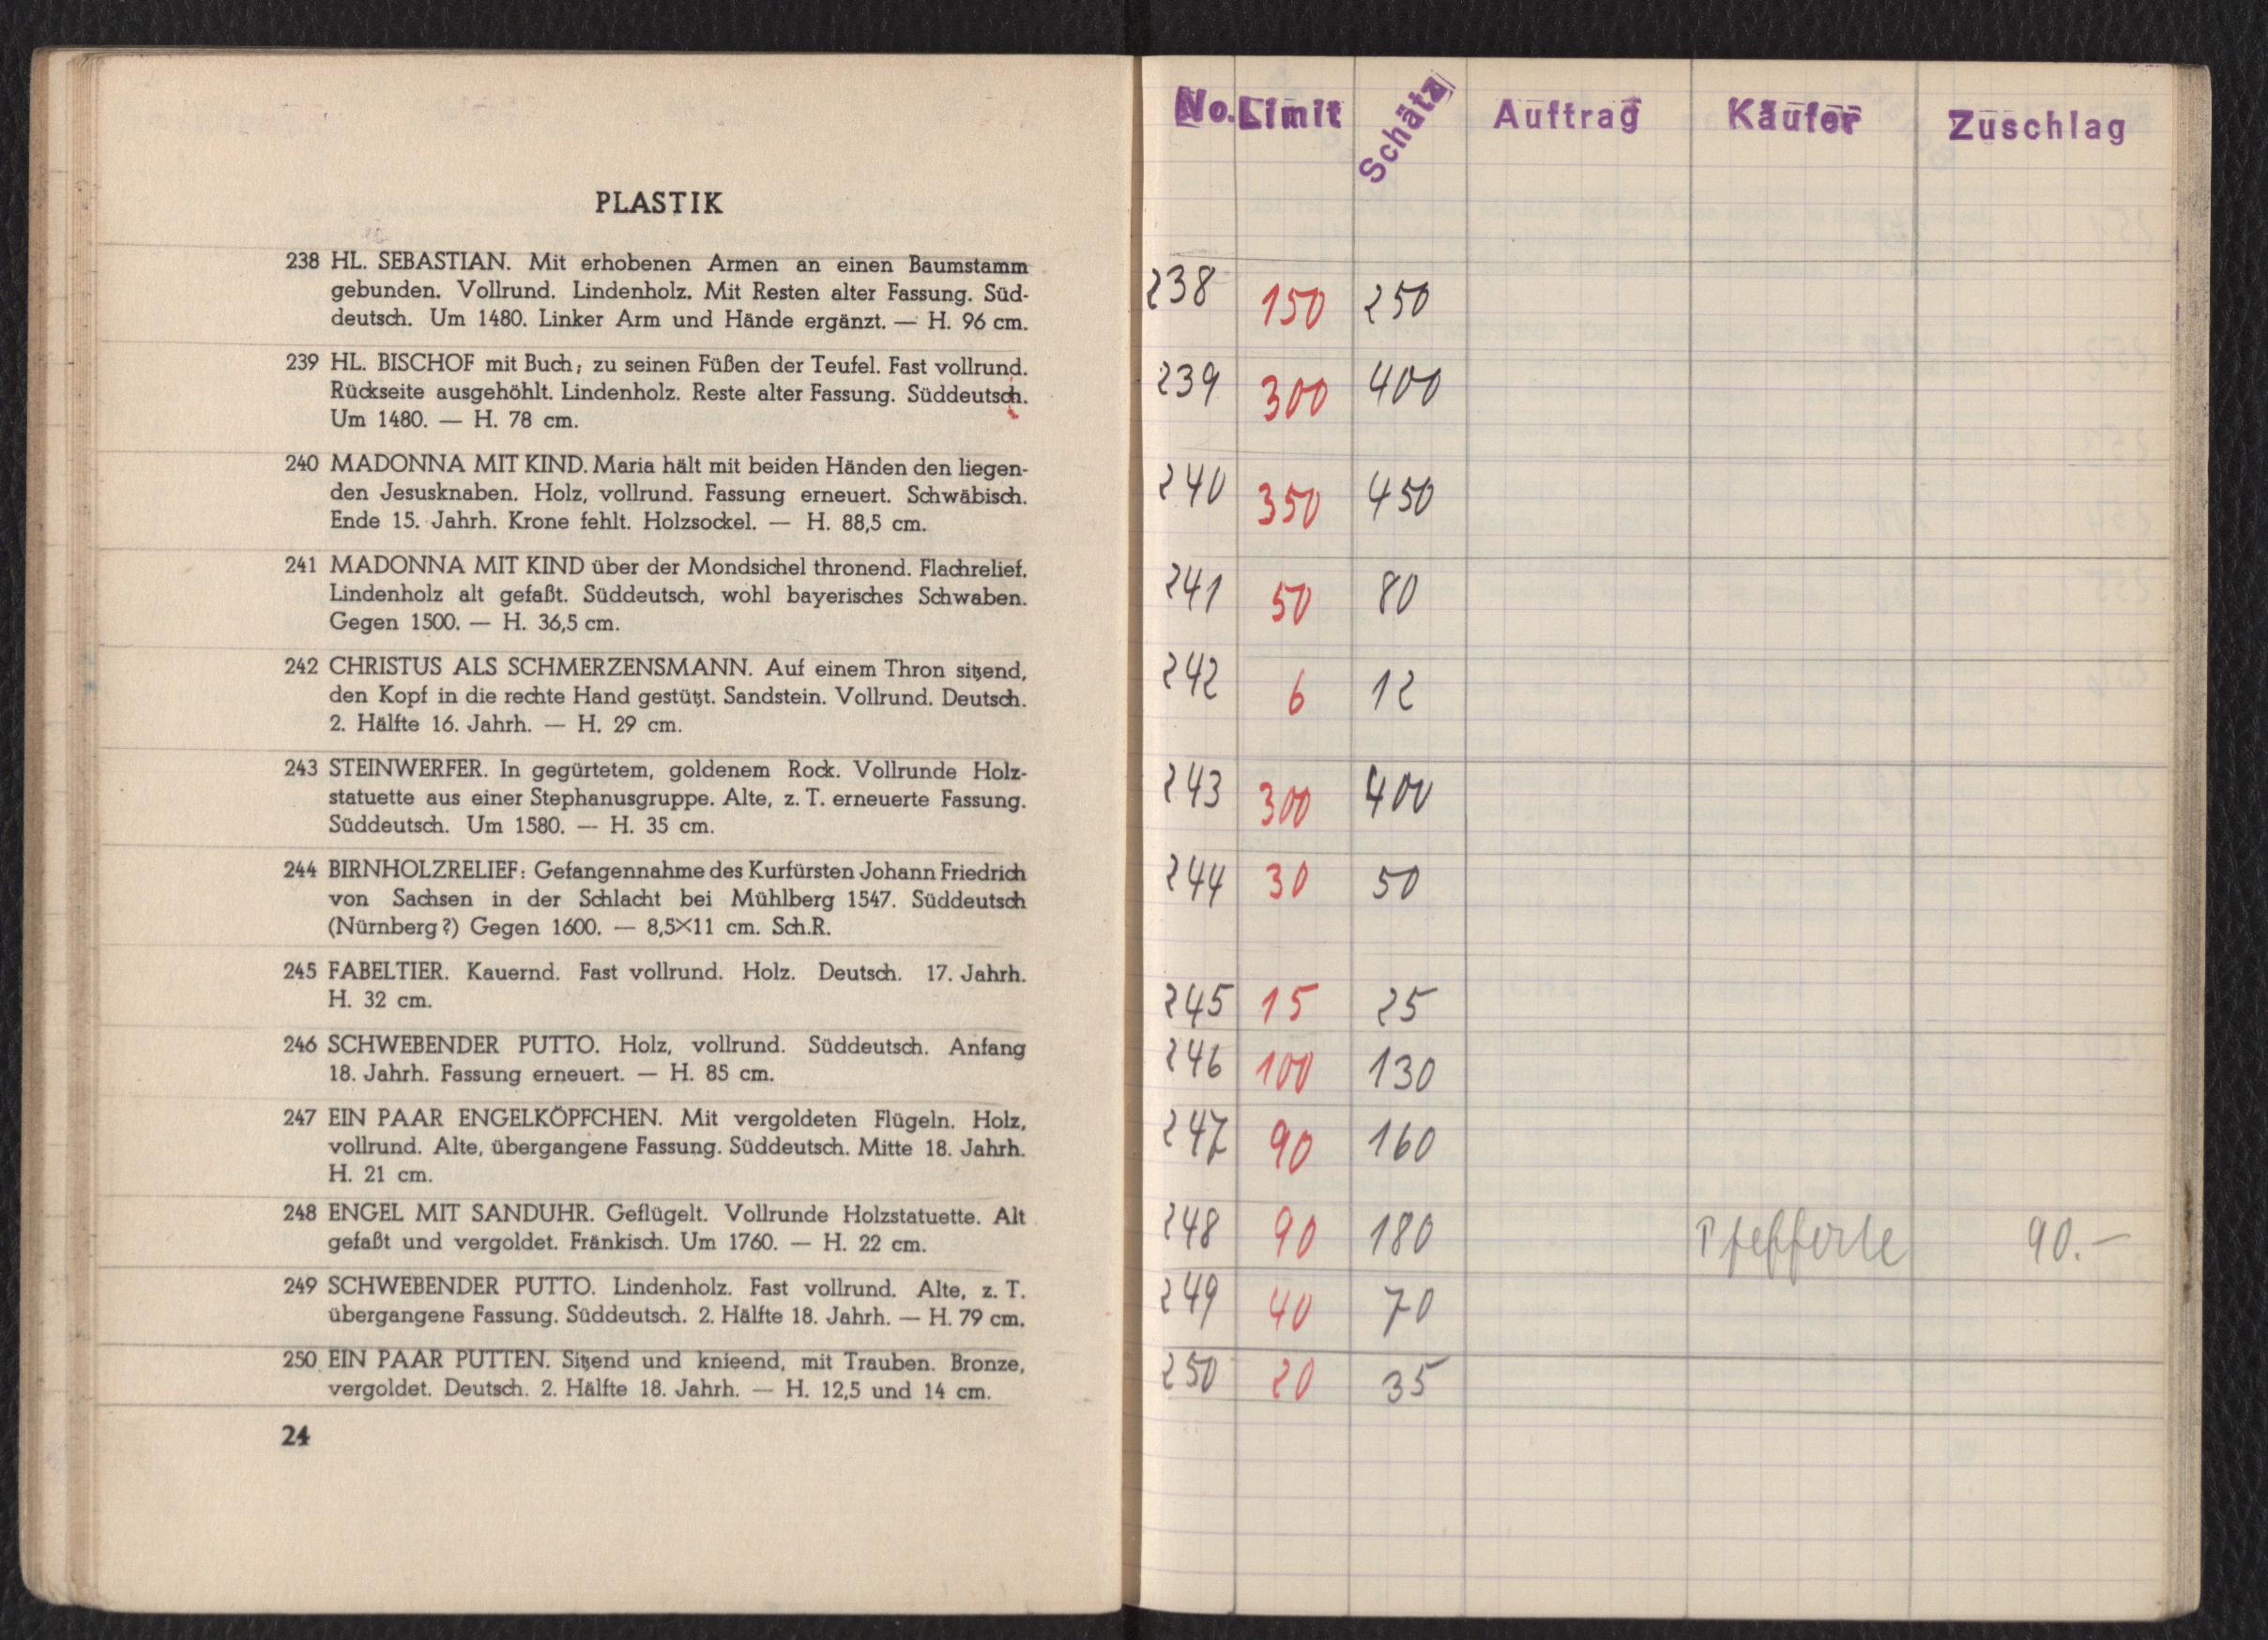 PLASTIK
238 HL. SEBASTIAN. Mit erhobenen Armen an einen Baumstamm
gebunden. Vollrund. Lindenholz. Mit Resten alter Fassung. Süd-
deutsch. Um 1480. Linker Arm und Hände ergänzt. — H. 96 cm.
239 HL. BISCHOF mit Buch; zu seinen Füßen der Teufel. Fast vollrund.
Rückseite ausgehöhlt. Lindenholz. Reste alter Fassung. Süddeutsch.
Um 1480. — H. 78 cm.
240 MADONNA MIT KIND. Maria hält mit beiden Händen den liegen-
den Jesusknaben. Holz, vollrund. Fassung erneuert. Schwäbisch.
Ende 15. Jahrh. Krone fehlt. Holzsockel. — H. 88,5 cm.
241 MADONNA MIT KIND über der Mondsichel thronend. Flachrelief.
Lindenholz alt gefaßt. Süddeutsch, wohl bayerisches Schwaben.
Gegen 1500. — H. 36,5 cm.
242 CHRISTUS ALS SCHMERZENSMANN. Auf einem Thron sitzend,
den Kopf in die rechte Hand gestützt. Sandstein. Vollrund. Deutsch.
2. Hälfte 16. Jahrh. — H. 29 cm.
243 STEINWERFER. In gegürtetem, goldenem Rock. Vollrunde Holz-
statuette aus einer Stephanusgruppe. Alte, z. T. erneuerte Fassung.
Süddeutsch. Um 1580. — H. 35 cm.
244 BIRNHOLZRELIEF: Gefangennahme des Kurfürsten Johann Friedrich
von Sachsen in der Schlacht bei Mühlberg 1547. Süddeutsch
(Nürnberg?) Gegen 1600. — 8,5×11 cm. Sch.R.
245 FABELTIER. Kauernd. Fast vollrund. Holz. Deutsch. 17. Jahrh.
H. 32 cm.
246 SCHWEBENDER PUTTO. Holz, vollrund. Süddeutsch. Anfang
18. Jahrh. Fassung erneuert. — H. 85 cm.
247 EIN PAAR ENGELKÖPFCHEN. Mit vergoldeten Flügeln. Holz,
vollrund. Alte, übergangene Fassung. Süddeutsch. Mitte 18. Jahrh.
H. 21 cm.
248 ENGEL MIT SANDUHR. Geflügelt. Vollrunde Holzstatuette. Alt
gefaßt und vergoldet. Fränkisch. Um 1760. — H. 22 cm.
249 SCHWEBENDER PUTTO. Lindenholz. Fast vollrund. Alte, z. T.
übergangene Fassung. Süddeutsch. 2. Hälfte 18. Jahrh. — H. 79 cm.
250 EIN PAAR PUTTEN. Sitzend und knieend, mit Trauben. Bronze,
vergoldet. Deutsch. 2. Hälfte 18. Jahrh. — H. 12,5 und 14 cm.
24
No. Limit Schätz Auftrag Käufer Zuschlag
238 150 250
239 300 400
240 350 450
241 50 80
242 6 12
243 300 400
244 30 50
245 15 25
246 100 130
247 90 160
248 90 180 Pfefferle 90.—
249 40 70
250 20 35